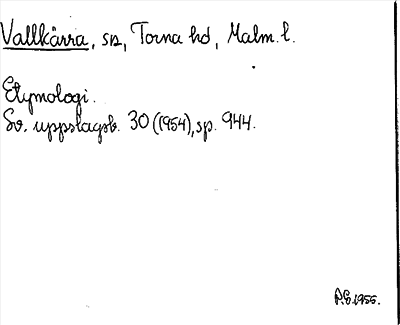 Vallkärra, sn, Torna hd, Malm. l.
Etymologi.
Sv. uppslagsb. 30 (1954), sp. 944.
P.G. 1956.